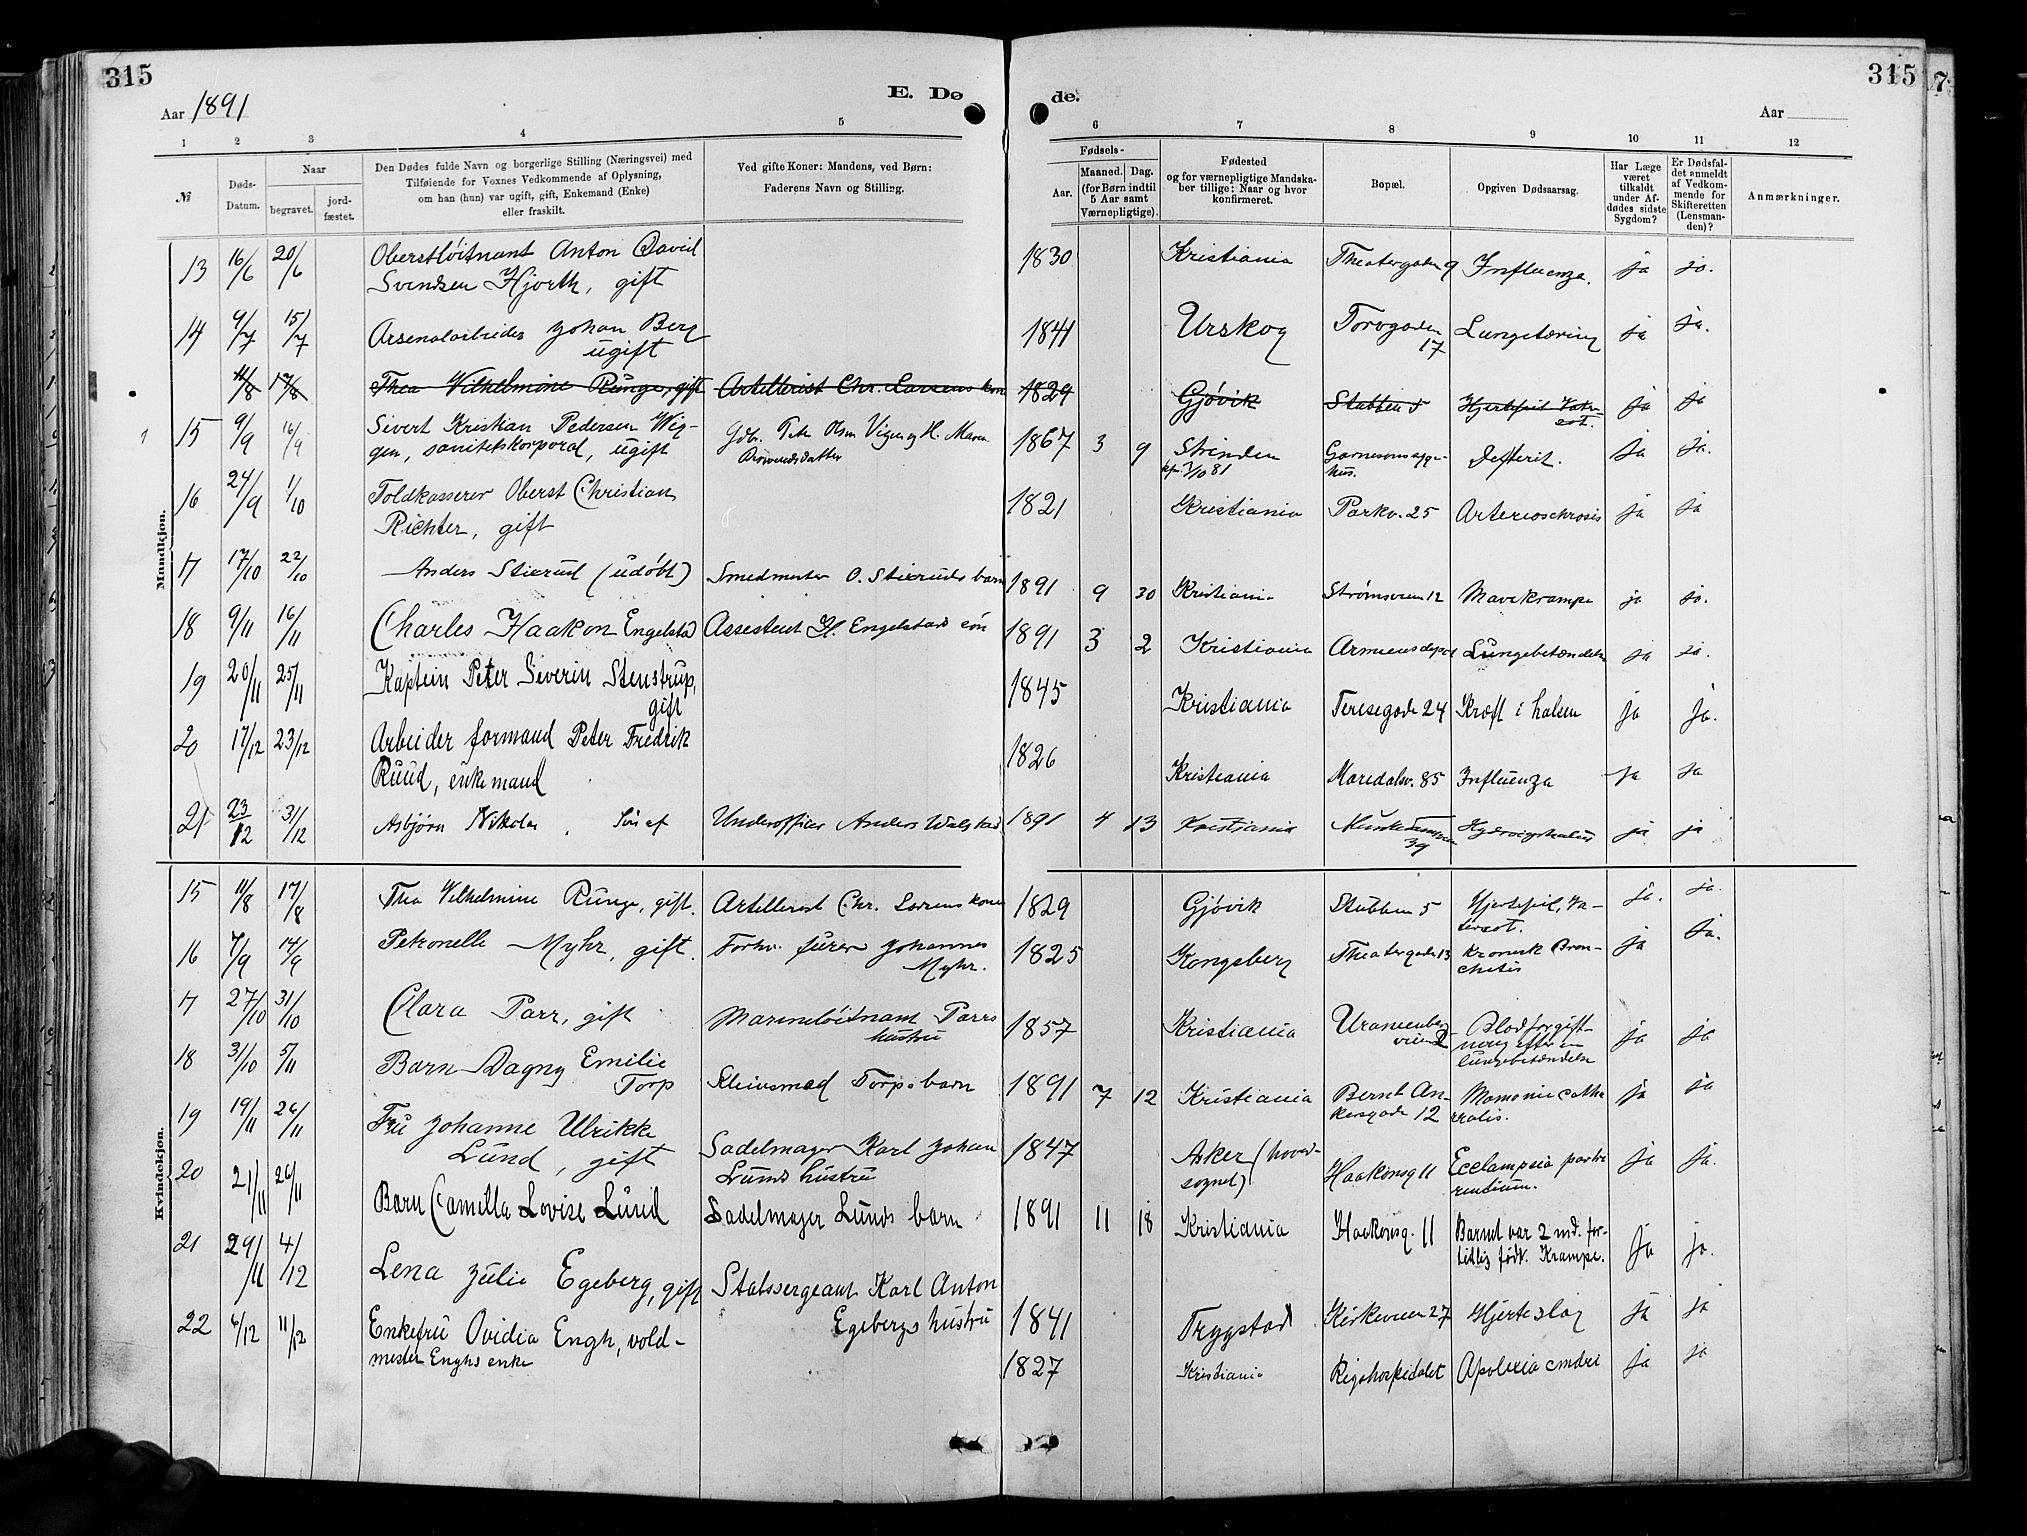 315
315
7
Aar 1891
E. Dø
de.
Aar
1 2 3 4 5 6 7 8 9 10 11 12
№
Døds-
Datum.
Naar
begravet.
jord-
fæstet.
Den Dødes fulde Navn og borgerlige Stilling (Næringsvei) med
Tilføiende for Voxnes Vedkommende af Oplysning,
om han (hun) var ugift, gift, Enkemand (Enke)
eller fraskilt.
Ved gifte Koner: Mandens, ved Børn:
Faderens Navn og Stilling.
Fødsels-
Aar.
Maaned. Dag.
(for Børn indtil
5 Aar samt
Værnepligtige).
Fødested
og for værnepligtige Mandska-
ber tillige: Naar og hvor
konfirmeret.
Bopæl.
Opgiven Dødsaarsag.
Har Læge
været
tilkaldt
under Af-
dødes sidste
Sygdom?
Er Dødsfal-
det anmeldt
af Vedkom-
mende for
Skifteretten
(Lensman-
den)?
Anmærkninger.
Mandkjøn.
13 16/6 20/6 Oberstløitnant Anton David 1830 Kristiania Theatergaden 9 Influenza. ja ja.
Svendsen Hjorth, gift
14 9/7 15/7 Arsenalarbeider Johan Berg 1841 Urskog Torvgaden Lungetæring ja ja.
ugift 17
11/8 17/8 Thea Vilhelmine Runge, gift Artillerist Chr. Larsens kone 1829 Gjøvik Stubben 5 Hjertefeil Vater- ja ja
sot.
15 9/9 16/9 Sivert Kristian Pedersen Wig- Gdb. Peter Olsen Vigen og H. Maren 1867 3 9 Strinden Garnisonssyge- Difterit. ja ja.
gen, sanitetskorporal, ugift hus.
16 24/9 1/10 Toldkasserer Oberst Christian 1821 Kristiania Parkv. 25 ja ja
Richter, gift
17 17/10 22/10 Anders Stixrud (udøbt) Smedmester O. Stixruds barn 1891 9 30 Kristiania Strømsveien 12 Mavekrampe ja ja.
18 9/11 16/11 Charles Haakon Engelstad Assistent H. Engelstads søn 1891 3 2 Kristiania Lungebetændelse ja ja.
19 20/11 25/11 Kaptein Peter Severin Stenstrup, 1845 Kristiania Teresegade 24 Kræft i halsen ja ja.
gift
20 17/12 23/12 Arbeider formand Peter Fredrik 1826 Kristiania Maridalsv. 85 Influenza ja ja
Ruud, enkemand
21 23/12 31/12 Asbjørn Nikolai, Søn af Underofficer Anders Walstad 1891 4 13 Kristiania ja ja
39
Kvindekjøn.
15 11/8 17/8 Thea Vilhelmine Runge, gift. Artillerist Chr. Larsens kone 1829 Gjøvik Stubben 5 Hjertefeil, Va- ja. ja.
tersot.
16 7/9 14/9 Petronelle Myhr, gift. Forhv. furer Johannes 1825 Kongsberg Theatergade 13 Kronisk Bron- ja ja.
Myhr. chitis
17 27/10 31/10 Clara Parr, gift Marineløitnant Parrs 1857 Kristiania Uranienborg- Blodforgift- ja ja
hustru veien 2 ning efter en
lungebetændelse
18 31/10 5/11 Barn Dagny Emilie Kleinsmed Torps barn 1891 7 12 Kristiania Bernt An- ja ja
Torp kersgade 12
19 19/11 26/11 Fru Johanne Ulrikke Sadelmager Karl Johan 1847 Asker (hoved- Haakonsg 11 Ecclampsia ja ja.
Lund, gift Lunds hustru sognet)
20 21/11 26/11 Barn Camilla Lovise Lund Sadelmager Lunds barn 1891 11 18 Kristiania Haakonsg. 11 Barnet var 2 md. for- ja ja.
tidlig født. Krampe.
21 29/11 4/12 Lena Julie Egeberg, gift Statssergeant Karl Anton
Egebergs hustru 1841 Trygstad Kirkeveien 27 Hjerteslag ja ja
22 6/12 11/12 Enkefru Ovidia Engh, vold-
mester Enghs enke 1827 Kristiania Rigshospitalet ja ja